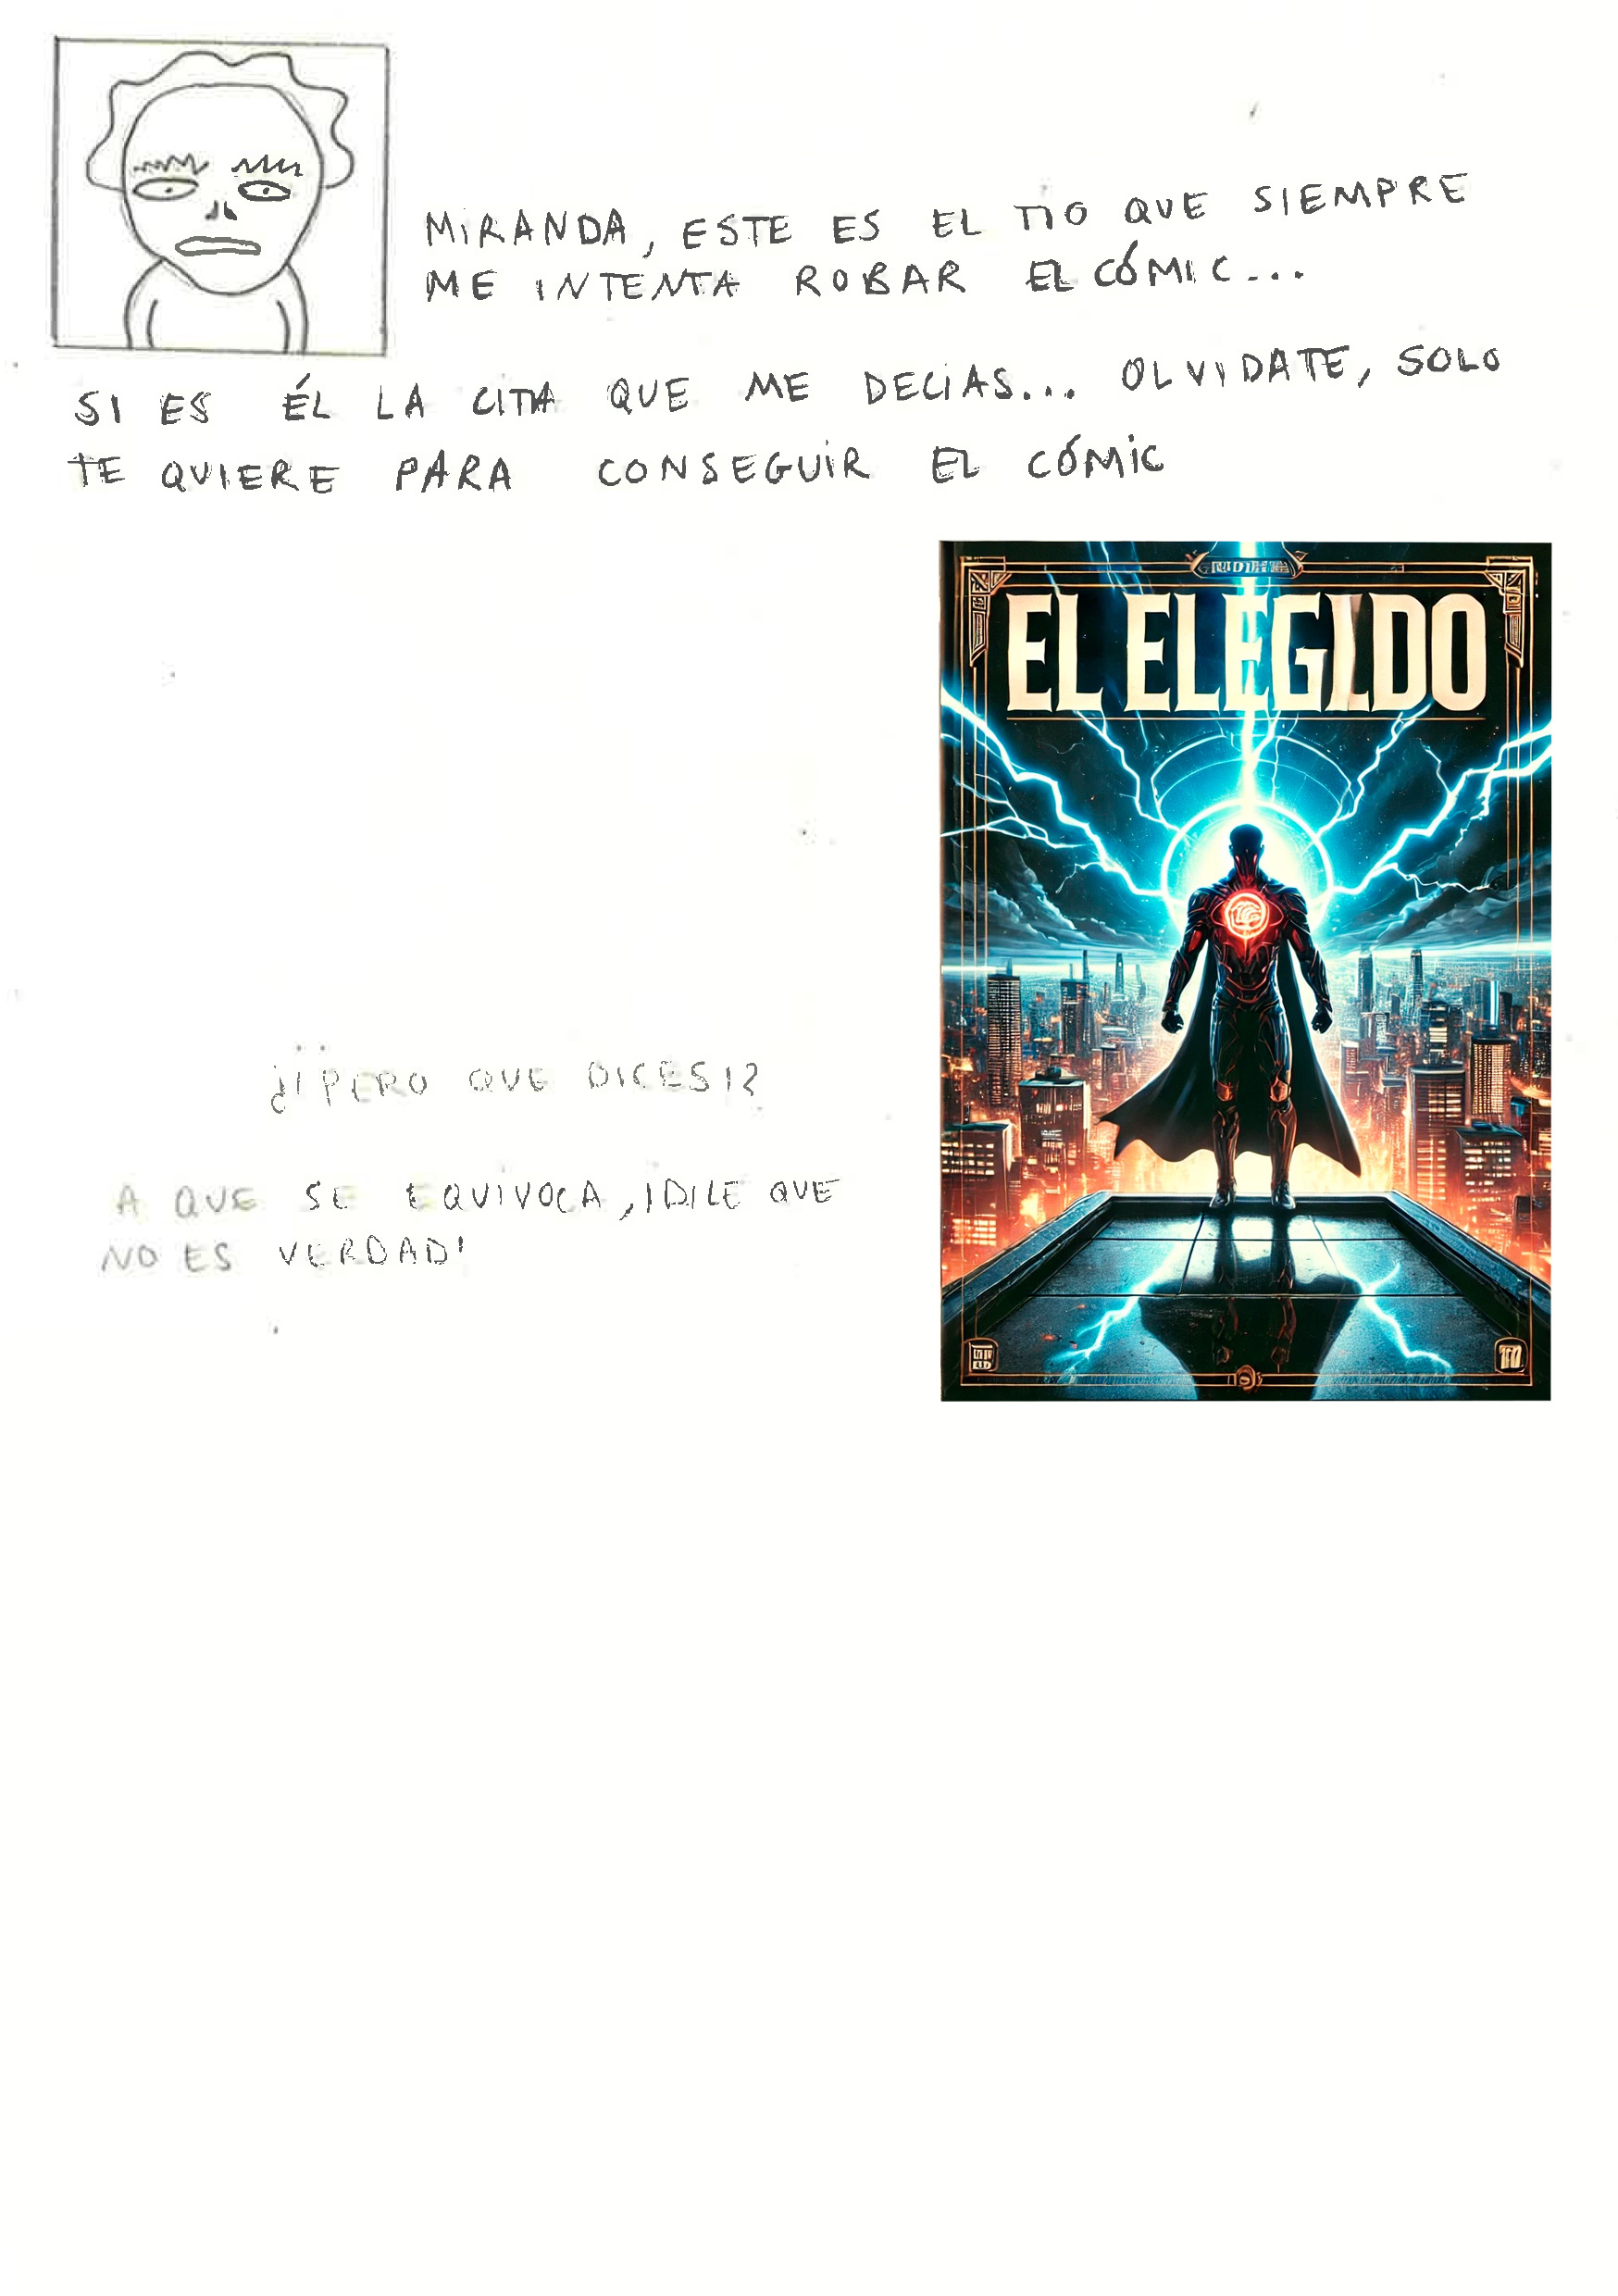 MIRANDA, ESTE ES EL TIO QUE SIEMPRE
ME INTENTA ROBAR EL CÓMIC...
SI ES ÉL LA CITA QUE ME DECIAS... OLVIDATE, SOLO
TE QUIERE PARA CONSEGUIR EL CÓMIC
EL ELEGIDO
¿¡PERO QUE DICES!?
A QUE SE EQUIVOCA, ¡DILE QUE
NO ES VERDAD!